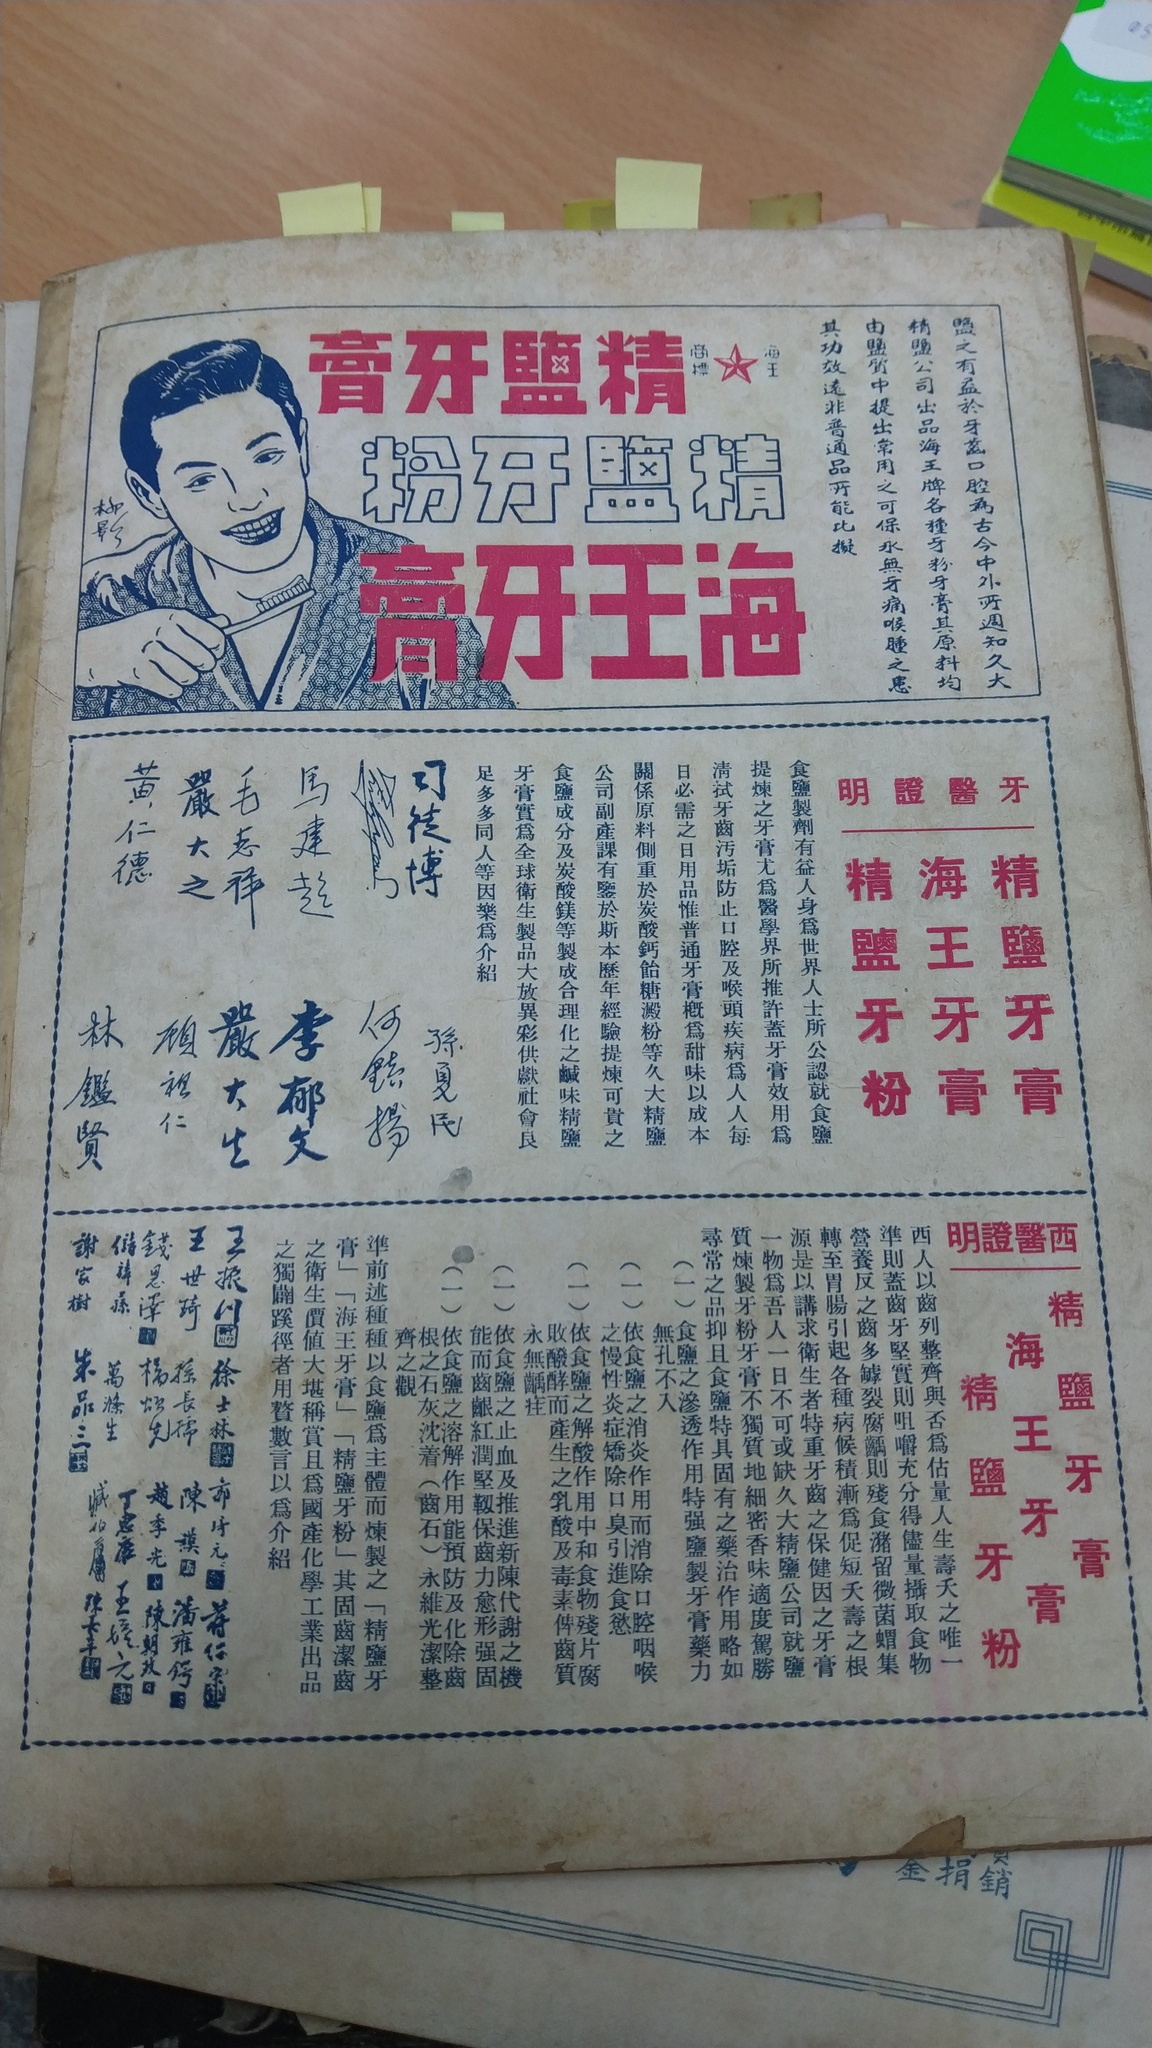 鹽之有益於牙齒口腔為古今中外所週知久大
精鹽公司出品海王牌各種牙粉牙膏其原料均
由鹽質中提出常用之可保永無牙痛喉腫之患
其功效遠非普通品所能比擬
海王
商標
精鹽牙膏
精鹽牙粉
海王牙膏
柳影
牙醫證明
精鹽牙膏
海王牙膏
精鹽牙粉
食鹽製劑有益人身為世界人士所公認就食鹽
提煉之牙膏尤為醫學界所推許蓋牙膏效用為
清拭牙齒污垢防止口腔及喉頭疾病為人人每
日必需之日用品惟普通牙膏概為甜味以成本
關係原料側重於炭酸鈣飴糖澱粉等久大精鹽
公司副產課有鑒於斯本歷年經驗提煉可貴之
食鹽成分及炭酸鎂等製成合理化之鹹味精鹽
牙膏實為全球衛生製品大放異彩供獻社會良
足多多同人等因樂為介紹
司徒博
馬建超
毛志祥
嚴大之
黃仁德
孫夏民
何鏡揚
李郁文
嚴大生
顧祖仁
林鑑賢
西醫證明
精鹽牙膏
海王牙膏
精鹽牙粉
西人以齒列整齊與否為估量人生壽夭之唯一
準則蓋齒牙堅實則咀嚼充分得儘量攝取食物
營養反之齒多罅裂腐齲則殘食瀦留微菌蝟集
轉至胃腸引起各種病候積漸為促短夭壽之根
源是以講求衛生者特重牙齒之保健因之牙膏
一物為吾人一日不可或缺久大精鹽公司就鹽
質煉製牙粉牙膏不獨質地細密香味適度駕勝
尋常之品抑且食鹽特具固有之藥治作用略如
(一)食鹽之滲透作用特强鹽製牙膏藥力
無孔不入
(一)依食鹽之消炎作用而消除口腔咽喉
之慢性炎症矯除口臭引進食慾
(一)依食鹽之解酸作用中和食物殘片腐
敗醱酵而產生之乳酸及毒素俾齒質
永無齲疰
(一)依食鹽之止血及推進新陳代謝之機
能而齒齦紅潤堅韌保齒力愈形强固
(一)依食鹽之溶解作用能預防及化除齒
根之石灰沈着(齒石)永維光潔整
齊之觀
準前述種種以食鹽為主體而煉製之「精鹽牙
膏」「海王牙膏」「精鹽牙粉」其固齒潔齒
之衛生價值大堪稱賞且為國產化學工業出品
之獨闢蹊徑者用贅數言以為介紹
王振川
王世琦
錢思澤
謝家樹
徐士林
孫長孺
楊煥先
萬滌生
朱品三
陳謨
趙季光
丁惠康
潘雍鍔
陳朝政
銷
金捐